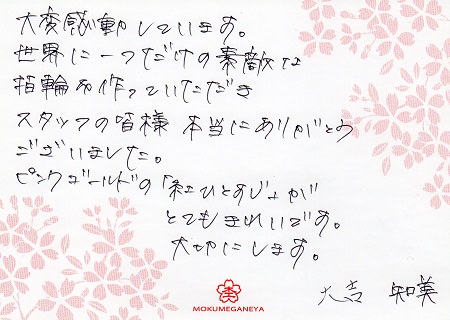 大変感動しています。
世界に一つだけの素敵な
指輪を作っていただき
スタッフの皆様 本当にありがとう
ございました。
ピンクゴールドの「紅ひとすじ」が
とてもきれいです。
大切にします。
大吉 知美
MOKUMEGANEYA